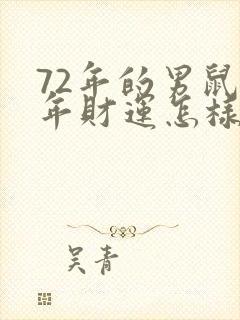 72年的男鼠
年财运怎样
吴青